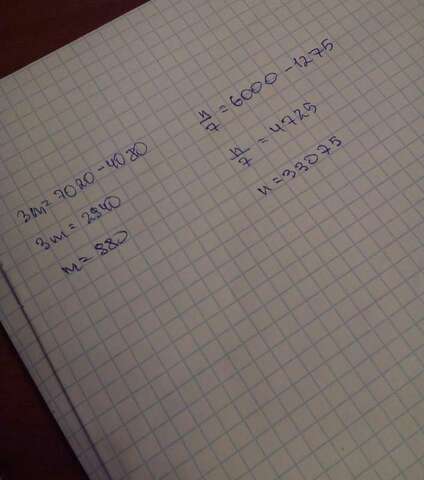 3m = 7020 - 4080
3m = 2940
m = 880
n/7 = 6000 - 1275
n/7 = 4725
n = 33075